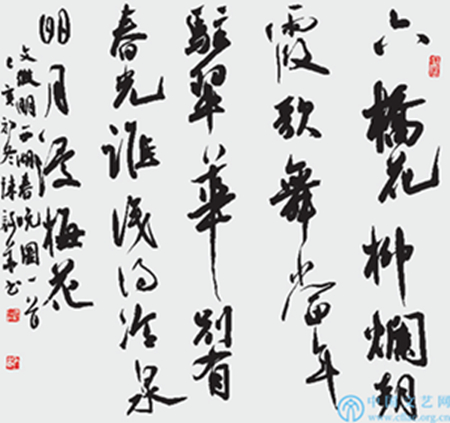 六橋花柳爛朝
霞歌舞當年
駐翠華別有
春光誰識得冷泉
明月浸梅花
文徵明西湖春曉圖一首
己亥初冬陳華书
中国文艺网
www.cflac.org.cn